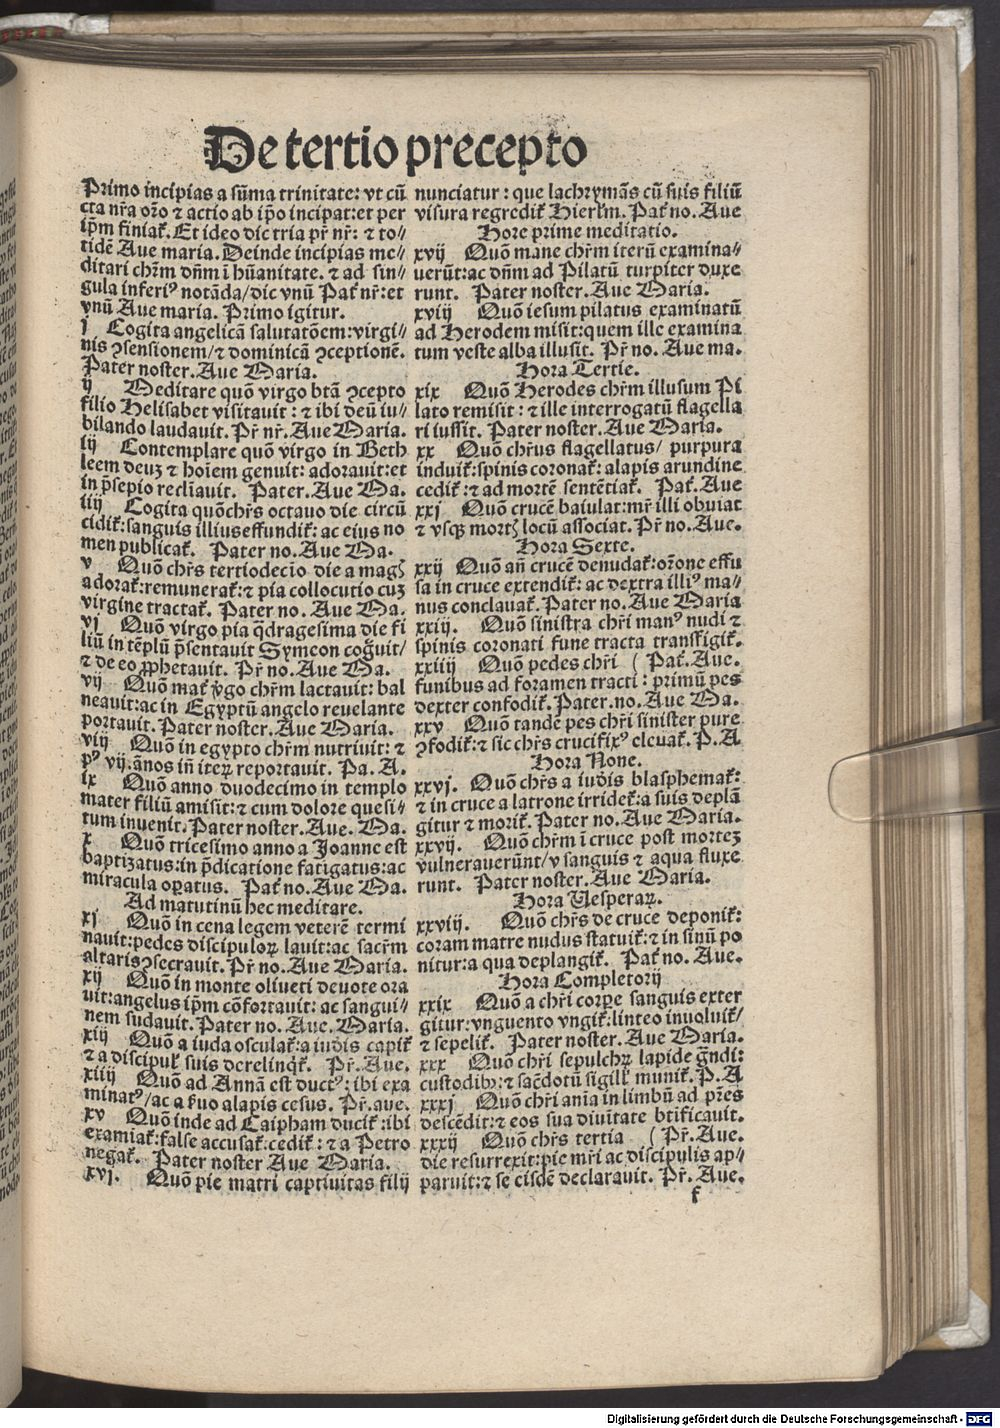 De tertio precepto
Primo incipias a sūma trinitate: vt cū
cta nr̄a or̄o ⁊ actio ab ip̄o incipat: et per
ip̄m finiat᷑. Et ideo dic tria pr̄ nr̄: ⁊ to⸗
tidē Aue maria. Deinde incipias me⸗
ditari chr̄m dn̄m ī hūanitate. ⁊ ad sin⸗
gula inferiꝰ notāda/ dic vnū Pat᷑ nr̄: et
vnū Aue maria. Primo igitur.
j Cogita angelicā salutatōem: virgi⸗
nis ꝯsensionem/ ⁊ dominicā ꝯceptionē.
Pater noster. Aue Maria.
ij Meditare quō virgo btā ꝯcepto
filio Helisabet visitauit: ⁊ ibi deū iu⸗
bilando laudauit. Pr̄ nr̄. Aue Maria.
iij Contemplare quō virgo in Beth
leem deuꝫ ⁊ hoīem genuit: adorauit: et
in p̄sepio reclīauit. Pater. Aue Ma.
iiij Cogita quō chr̄s octauo die circū
cidit᷑: sanguis illius effundit᷑: ac eius no
men publicat᷑. Pater no. Aue Ma.
v Quō chr̄s tertiodecīo die a magꝭ
adorat᷑: remunerat᷑: ⁊ pia collocutio cuꝫ
virgine tractat᷑. Pater no. Aue Ma.
vj Quō virgo pia q̄dragesima die fi
liū in tēplū p̄sentauit Symeon coḡuit/
⁊ de eo ꝓphetauit. Pr̄ no. Aue Ma.
vij Quō mat᷑ v̄go chr̄m lactauit: bal
neauit: ac in Egyptū angelo reuelante
portauit. Pater noster. Aue Maria.
viij Quō in egypto chr̄m nutriuit: ⁊
pꝰ vij. ānos in̄ iteꝝ reportauit. Pa. A.
ix Quō anno duodecimo in templo
mater filiū amisit: ⁊ cum dolore quesi⸗
tum inuenit. Pater noster. Aue. Ma.
x Quō tricesimo anno a Joanne est
baptizatus: in p̄dicatione fatigatus: ac
miracula oꝑatus. Pat᷑ no. Aue Ma.
Ad matutinū hec meditare.
xj Quō in cena legem veterē termi
nauit: pedes discipuloꝝ lauit: ac sacr̄m
altaris ꝯsecrauit. Pr̄ no. Aue Maria.
xij Quō in monte oliueti deuote ora
uit: angelus ip̄m cōfortauit: ac sangui⸗
nem sudauit. Pater no. Aue. Maria.
xiij Quō a iuda osculat᷑: a iudīs capit᷑
⁊ a discipul᷑ suis derelinq̄t᷑. Pr̄. Aue.
xiiij Quō ad Annā est ductꝰ: ibi exa
minatꝰ/ ac a ẜuo alapis cesus. Pr̄. aue.
xv Quō inde ad Caipham ducit᷑: ibi
examīat᷑: false accusat᷑: cedit᷑: ⁊ a Petro
negat᷑. Pater noster Aue Maria.
xvj. Quō pie matri captiuitas filij
nunciatur: que lachrymās cū suis filiū
visura regredit᷑ Hierlm̄. Pat᷑ no. Aue
Hore prime meditatio.
xvij Quō mane chr̄m iterū examina⸗
uerūt: ac dn̄m ad Pilatū turpiter duxe
runt. Pater noster. Aue Maria.
xviij Quō iesum pilatus examinatū
ad Herodem misit: quem ille examina
tum veste alba illusit. Pr̄ no. Aue ma.
Hora Tertie.
xix Quō Herodes chr̄m illusum Pi
lato remisit: ⁊ ille interrogatū flagella
ri iussit. Pater noster. Aue Maria.
xx Quō chr̄us flagellatus/ purpura
induit᷑: spinis coronat᷑: alapis arundine
cedit᷑: ⁊ ad mortē sentētiat᷑. Pat᷑. Aue
xxj Quō crucē baiulat: mr̄ illi obuiat
⁊ vsqꝫ mortꝭ locū associat. Pr̄ no. Aue.
Hora Sexte.
xxij Quō an̄ crucē denudat᷑: or̄one effu
sa in cruce extendit᷑: ac dextra illiꝰ ma⸗
nus conclauat᷑. Pater no. Aue Maria
xxiij. Quō sinistra chr̄i manꝰ nudi ⁊
spinis coronati fune tracta transfigit᷑.
xxiiij Quō pedes chr̄i ( Pat᷑. Aue.
funibus ad foramen tracti: primū pes
dexter confodit᷑. Pater. no. Aue Ma.
xxv Quō tandē pes chr̄i sinister pure
ꝯfodit᷑: ⁊ sic chr̄s crucifixꝰ eleuat᷑. P. A
Hora None.
xxvj. Quō chr̄s a iudīs blasphemat᷑:
⁊ in cruce a latrone irridet᷑: a suis deplā
gitur ⁊ morit᷑. Pater no. Aue Maria.
xxvij. Quō chr̄m ī cruce post morteꝫ
vulnerauerūnt/ v sanguis ⁊ aqua fluxe
runt. Pater noster. Aue Maria.
Hora Uesperaꝝ.
xxviij. Quō chr̄s de cruce deponit᷑:
coram matre nudus statuit᷑: ⁊ in sinū po
nitur: a qua deplangit᷑. Pat᷑ no. Aue.
Hora Completorij
xxix Quō a chr̄i corꝑe sanguis exter
gitur: vnguento vngit᷑: linteo inuoluit᷑/
⁊ sepelit᷑. Pater noster. Aue Maria.
xxx Quō chr̄i sepulchꝝ lapide ḡndi:
custodibꝫ: ⁊ sac̄dotū sigill᷑ munit᷑. P. A
xxxj Quō chr̄i anīa in limbū ad pr̄es
descēdit: ⁊ eos sua diuītate btīficauit.
xxxij Quō chr̄s tertia ( Pr̄. Aue.
die resurrexit: pie mr̄i ac discipulis ap⸗
paruit: ⁊ se eisdē declarauit. Pr̄. Aue.
f
Digitalisierung gefördert durch die Deutsche Forschungsgemeinschaft - DFG